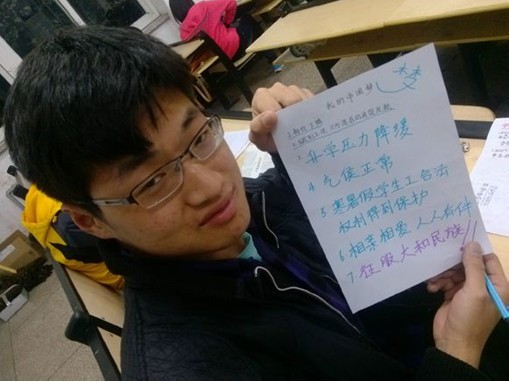 我的中国梦
3. 升学压力降缓
4. 气候正常
5 寒暑假学生工合法
权利得到保护
6. 相亲相爱 人人有伴
7. 征服大和民族!!